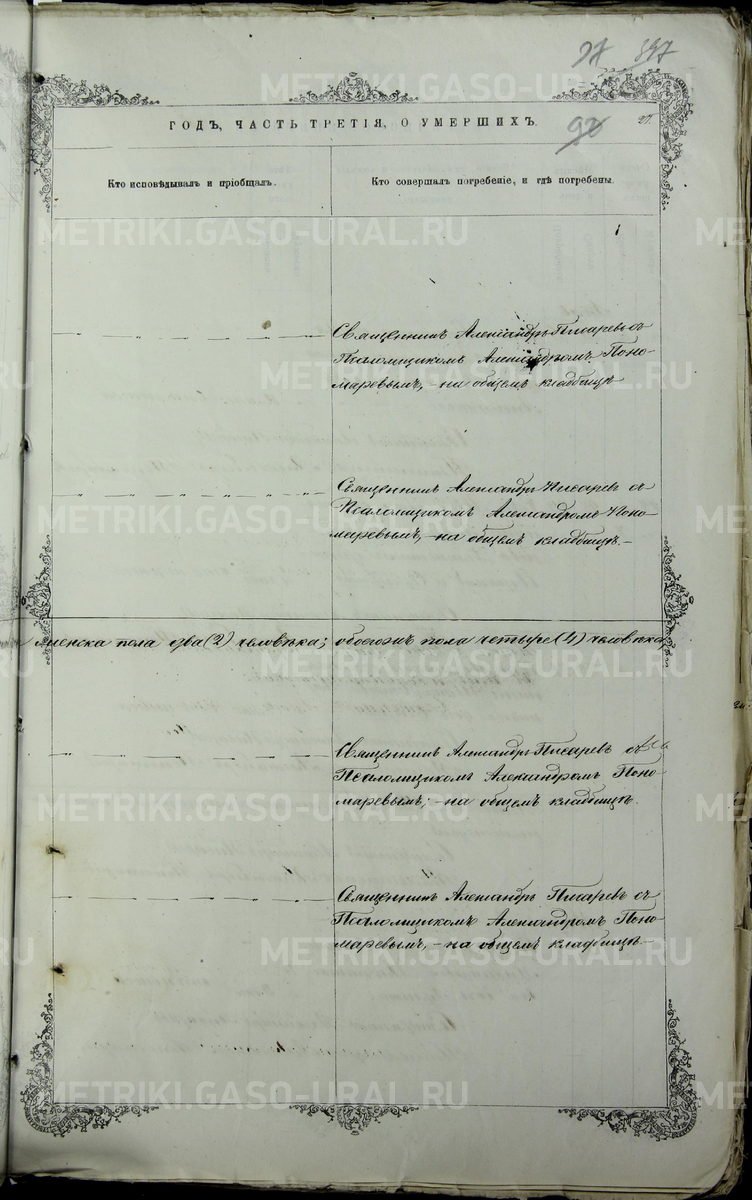 97 397
ГОДЪ, ЧАСТЬ ТРЕТІЯ, О УМЕРШИХЪ.
27.
Кто исповѣдывалъ и пріобщалъ.
Кто совершалъ погребеніе, и гдѣ погребены.
Священникъ Александръ Писаревъ съ
Псаломщикомъ Александромъ Поно-
маревымъ, - на общемъ кладбищѣ
Священникъ Александръ Писаревъ съ
Псаломщикомъ Александромъ Поно-
маревымъ, - на общемъ кладбищѣ. -
женска пола два (2) человѣка; обоего пола четыре (4) человѣка
Священникъ Александръ Писаревъ съ
Псаломщикомъ Александромъ Поно-
маревымъ; - на общемъ кладбищѣ.
Священникъ Александръ Писаревъ съ
Псаломщикомъ Александромъ Поно-
маревымъ, - на общемъ кладбищѣ -
METRIKI.GASO-URAL.RU